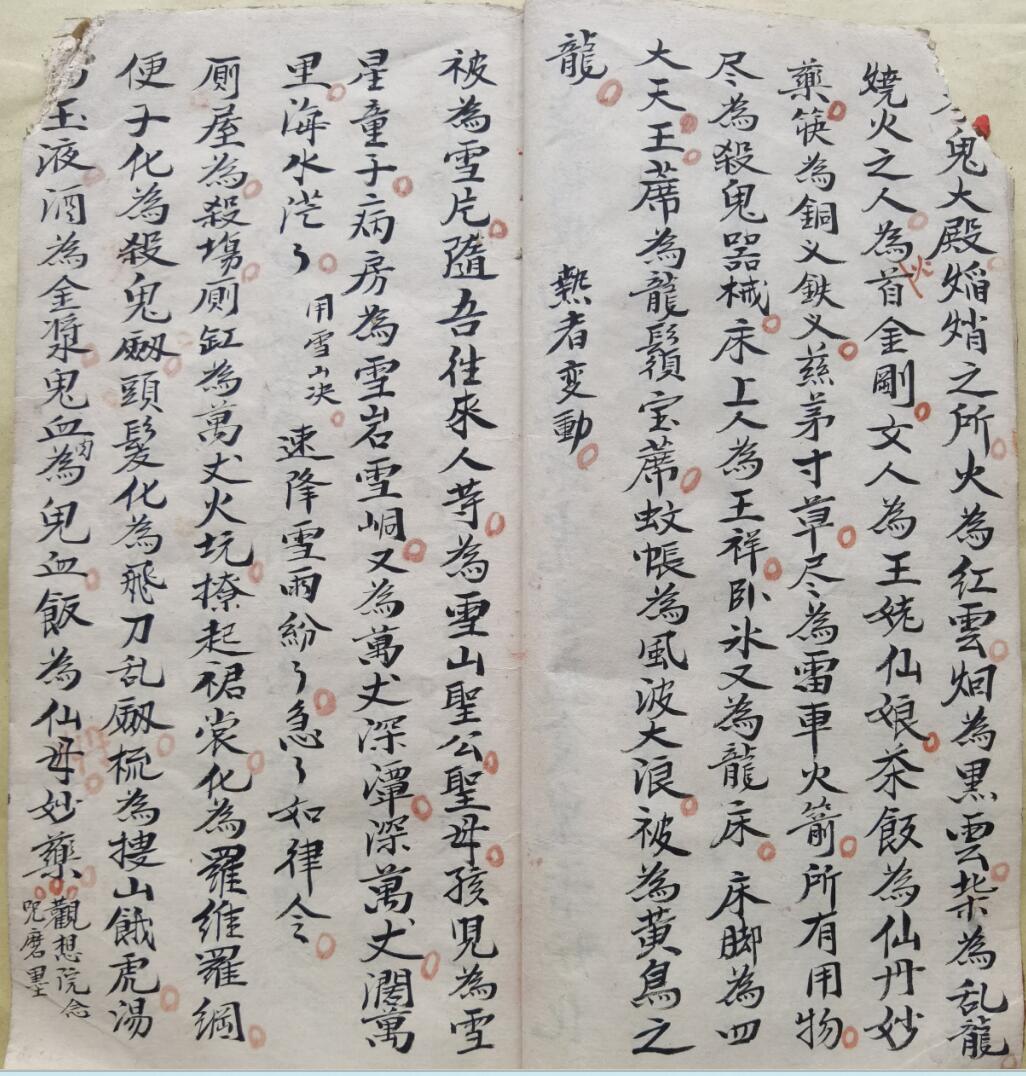 鬼大殿焰焇之所火為红雲烟為黒雲柴為乱龍
燒火之人為火首金剛女人為王姥仙娘茶飯為仙丹妙
藥筷為銅义鉄义蔴茅寸草尽為雷車火箭所有用物
尽為殺鬼器械床上人為王祥卧氷又為龍床床脚為四
大天王蓆為龍鬚宝蓆蚊帳為風波大浪被為黃鳥之
龍 熱者变動
被為雪片隨吾往來人等為雪山聖公聖母孩児為雪
星童子病房為雪岩雪峒又為萬丈深潭深萬丈濶萬
里海水茫了 用雪山决 速降雪雨紛了急了如律令
厠屋為殺塲厠缸為萬丈火坑撩起裙裳化為羅維羅網
便子化為殺鬼劔頭髮化為飛刀乱劔梳為搜山餓虎湯
為玉液酒為金漿鬼血肉為鬼血飯為仙母妙藥 觀想院念
咒磨墨